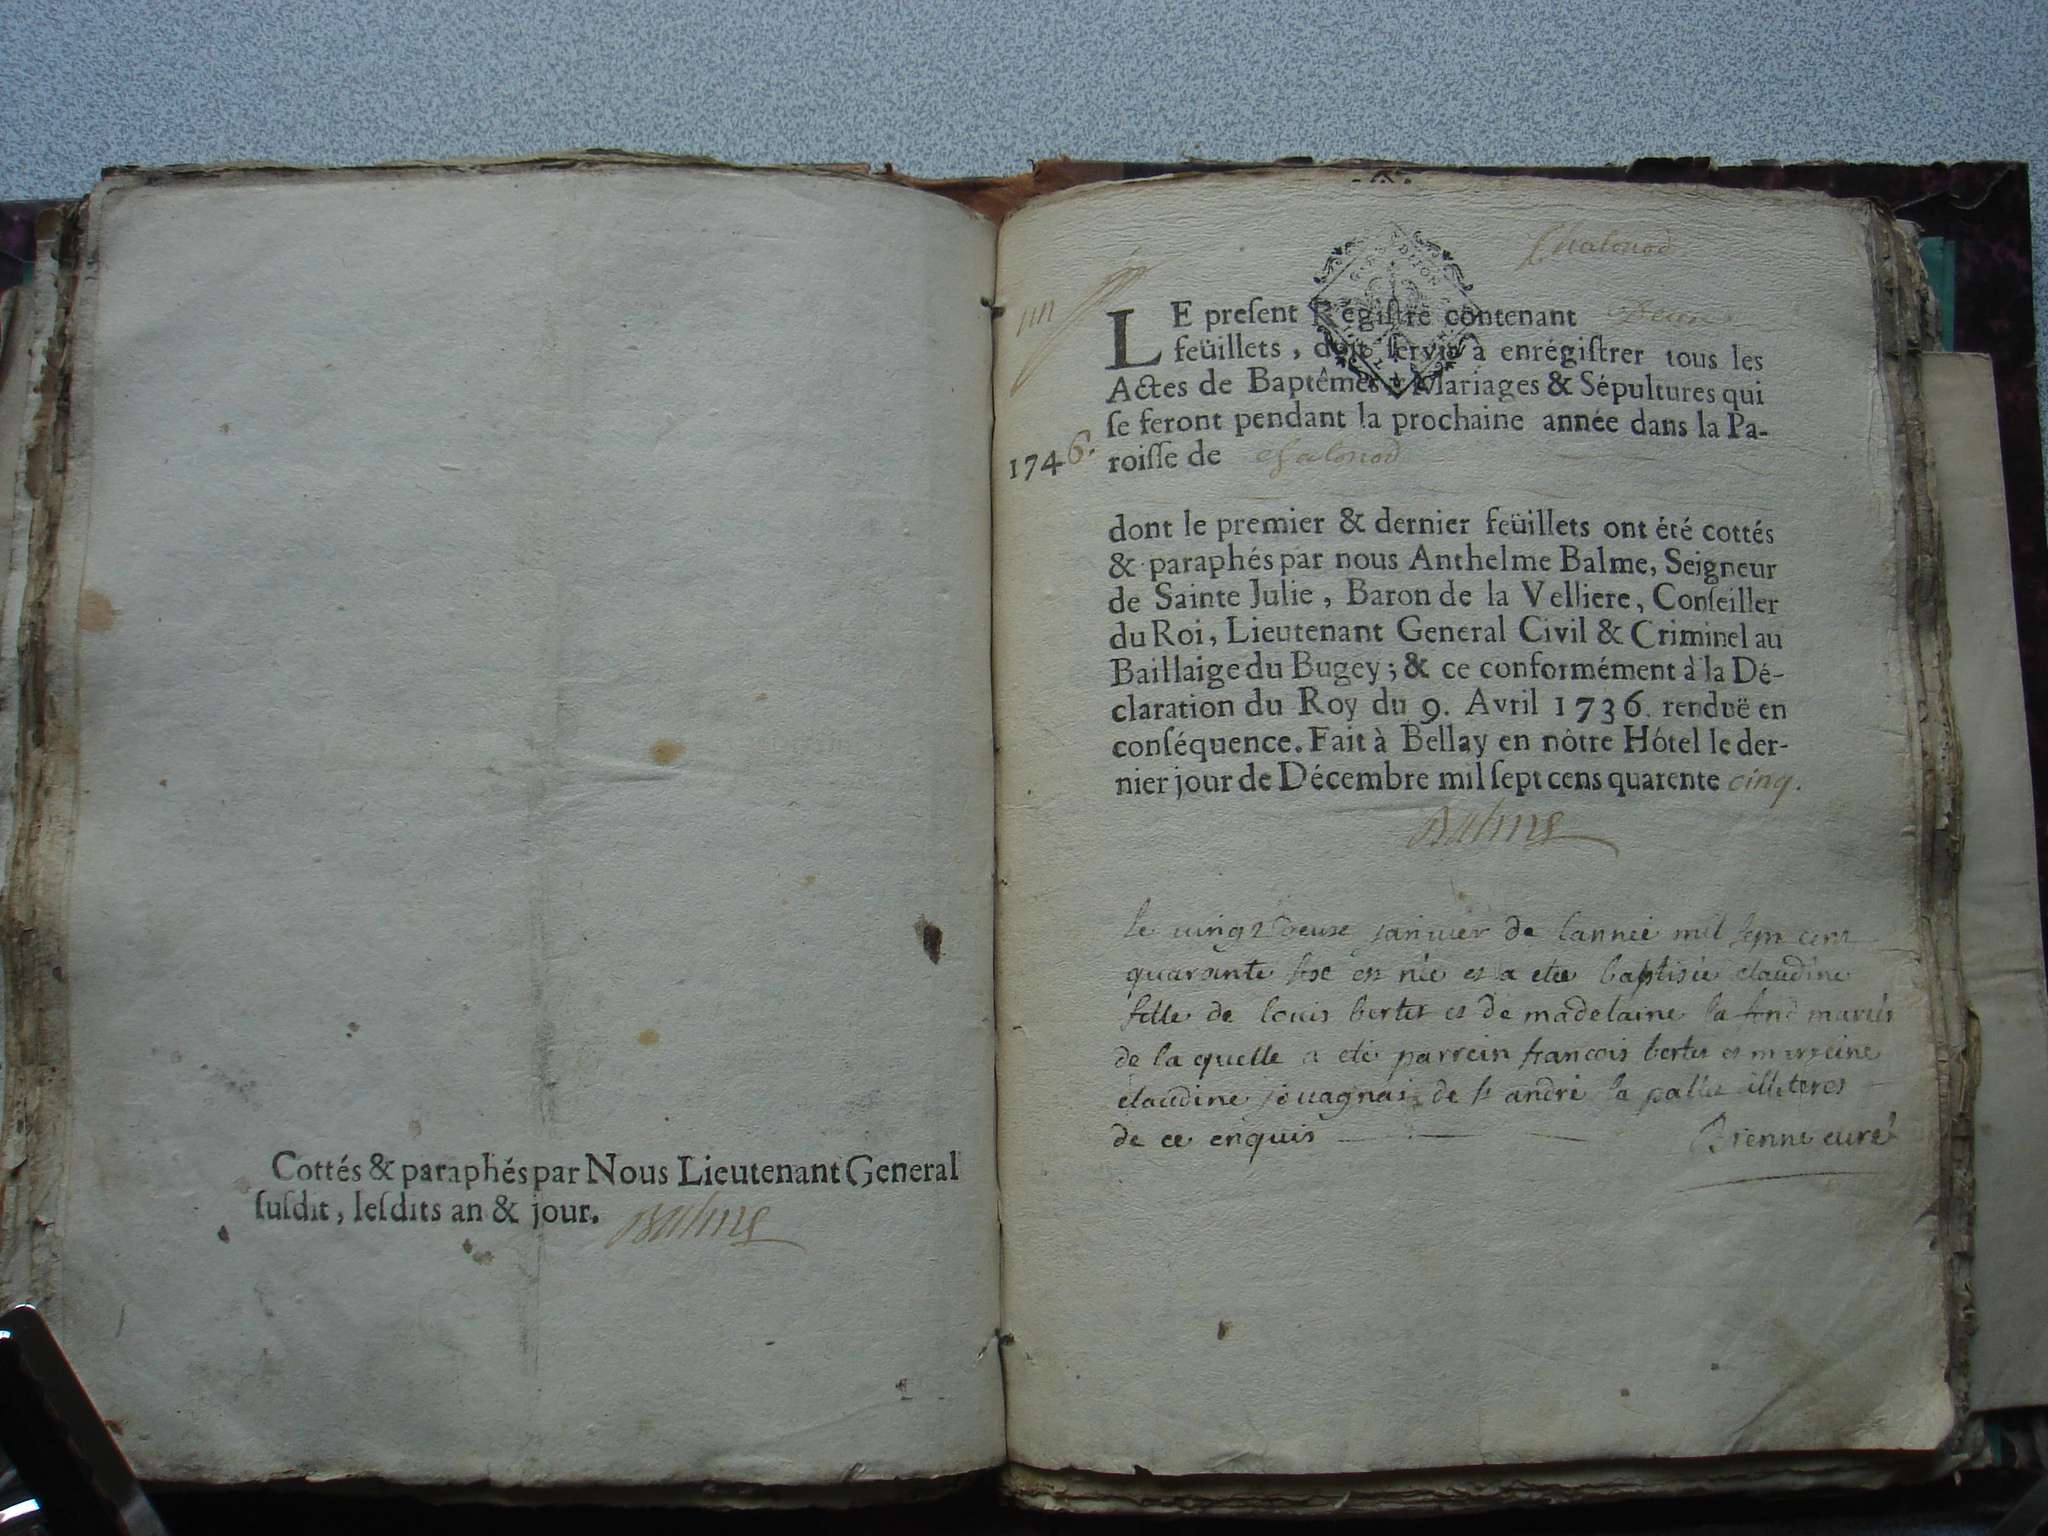 Cottés & paraphés par Nous Lieutenant General
susdit, lesdits an & jour. Balme
Chalonod
LE present Régistre contenant
feüillets, doit servir à enrégistrer tous les
Actes de Baptêmes, Mariages & Sépultures qui
se feront pendant la prochaine année dans la Pa-
1746. roisse de chalonod
dont le premier & dernier feüillets ont été cottés
& paraphés par nous Anthelme Balme, Seigneur
de Sainte Julie, Baron de la Velliere, Conseiller
du Roi, Lieutenant General Civil & Criminel au
Baillaige du Bugey; & ce conformément à la Dé-
claration du Roy du 9. Avril 1736. renduë en
conséquence. Fait à Bellay en nôtre Hôtel le der-
nier jour de Décembre mil sept cens quarente cinq.
Balme
le janvier de lannée mil
quarante née et a etée baptisée claudine
fille de louis bertet et de madelaine la mariés
de la quelle a eté parrein francois bertet et marreine
claudine de st andré la
de ce enquis curé